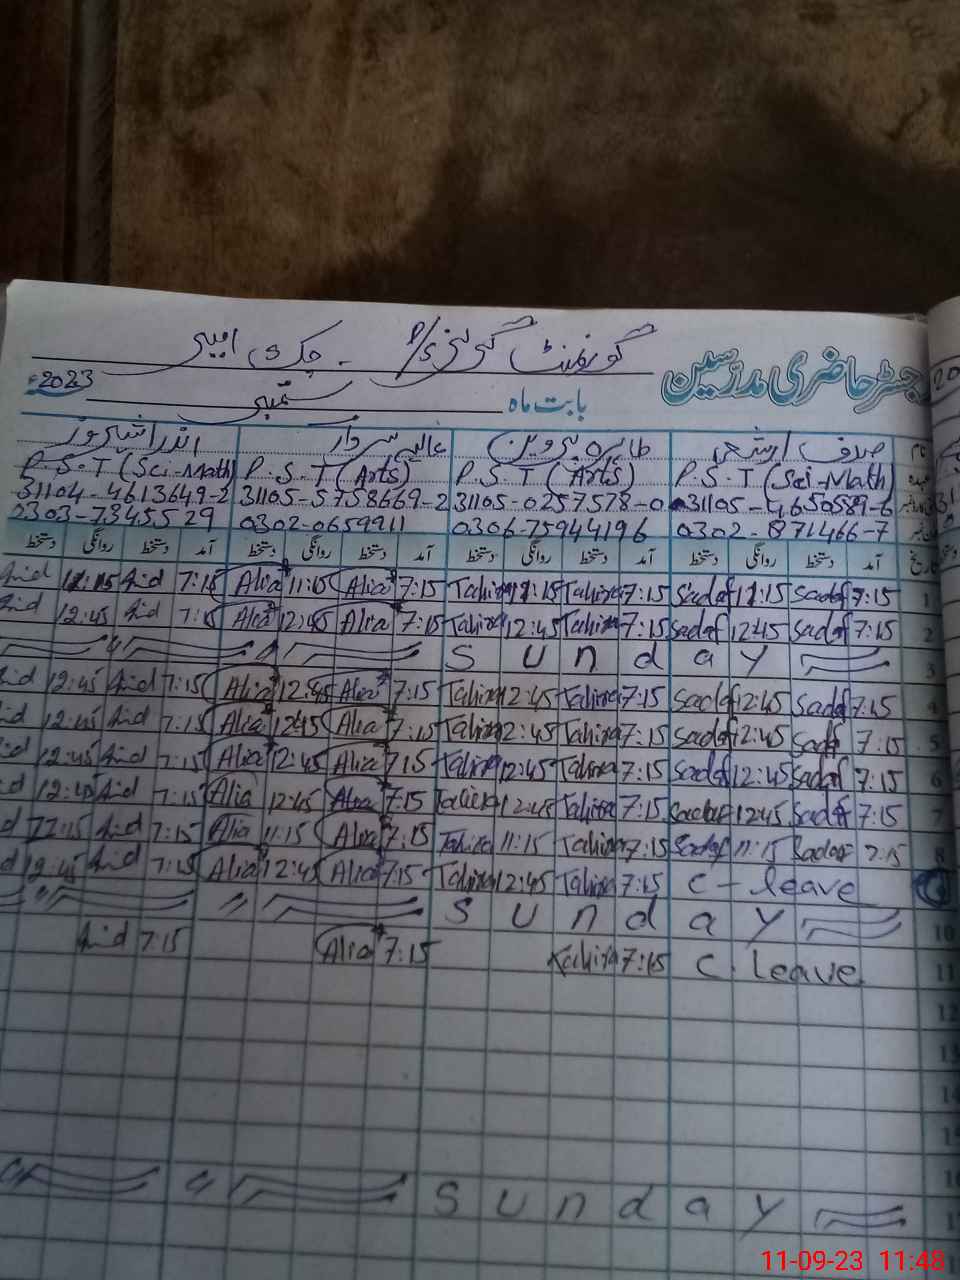 گورنمنٹ گرلز P/S
رجسٹر حاضری مدرسین
بابت ماہ ستمبر 2023
صدف ارشد طاہرہ پروین عالیہ سردار
P.S.T (Sci-Math) P.S.T (Arts) P.S.T (Arts) P.S.T (Sci-Math)
31104-4613649-2 31105-5758669-2 31105-0257578-0 31105-4650589-6
0303-7345529 0302-0659911 0306-75944196 0302-871466-7
آمد دستخط روانگی دستخط آمد دستخط روانگی دستخط آمد دستخط روانگی دستخط آمد دستخط روانگی دستخط
7:15 Alia 11:15 Alia 7:15 Tahira 11:15 Tahira 7:15 Sadaf 11:15 Sadaf 7:15 1
12:45 Alia 12:45 Alia 7:15 Tahira 12:45 Tahira 7:15 Sadaf 12:45 Sadaf 7:15 2
Sunday 3
12:45 7:15 Alia 12:45 Alia 7:15 Tahira 12:45 Tahira 7:15 Sadaf 12:45 Sadaf 7:15 4
12:45 7:15 Alia 12:45 Alia 7:15 Tahira 12:45 Tahira 7:15 Sadaf 12:45 Sadaf 7:15 5
12:45 7:15 Alia 12:45 Alia 7:15 Tahira 12:45 Tahira 7:15 Sadaf 12:45 Sadaf 7:15 6
12:45 7:15 Alia 12:45 Alia 7:15 Tahira 12:45 Tahira 7:15 Sadaf 12:45 Sadaf 7:15 7
7:15 Alia 11:15 Alia 7:15 Tahira 11:15 Tahira 7:15 Sadaf 11:15 Sadaf 7:15 8
12:45 7:15 Alia 12:45 Alia 7:15 Tahira 12:45 Tahira 7:15 C-leave
Sunday 10
7:15 Alia 7:15 Tahira 7:15 C.leave 11
12
13
14
15
16
Sunday
11-09-23 11:48